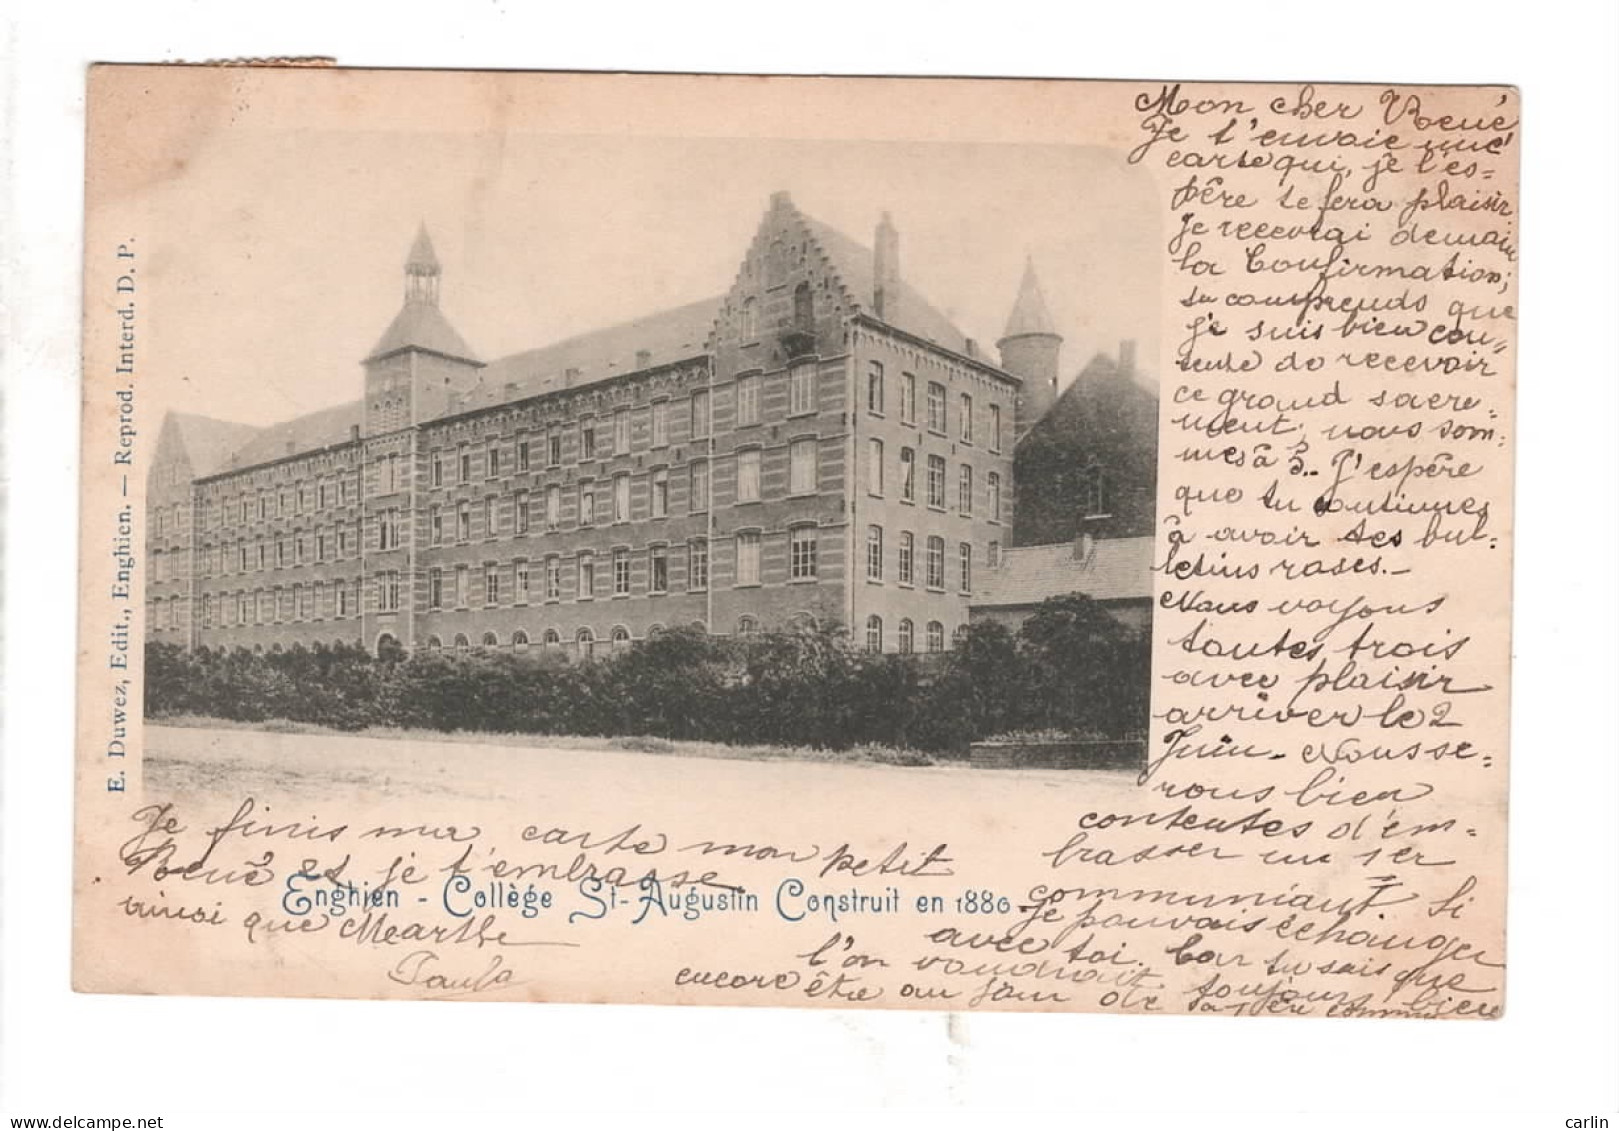 Mon cher René
Je t'envoie une
carte qui, je l'es=
père te fera plaisir.
Je recevrai demain
la Confirmation;
tu comprends que
je suis bien con=
tente de recevoir
ce grand sacre=
ment, nous som=
mes à 3.. J'espère
que tu continues
à avoir tes bul=
letins roses.-
Nous voyons
toutes trois
avec plaisir
arriver le 2
Juin. Nous se=
rons bien
contentes d'em=
brasser un 1er
communiant. Si
je pouvais échanger
avec toi. Car tu sais que
l'on voudrait toujours bien
encore être au jour de sa 1ère
Je finis ma carte mon petit
René et je t'embrasse
ainsi que Marthe
Paula
Enghien - Collège St-Augustin Construit en 1880.
E. Duwez, Edit., Enghien. — Reprod. Interd. D. P.
delcampe.net
carlin